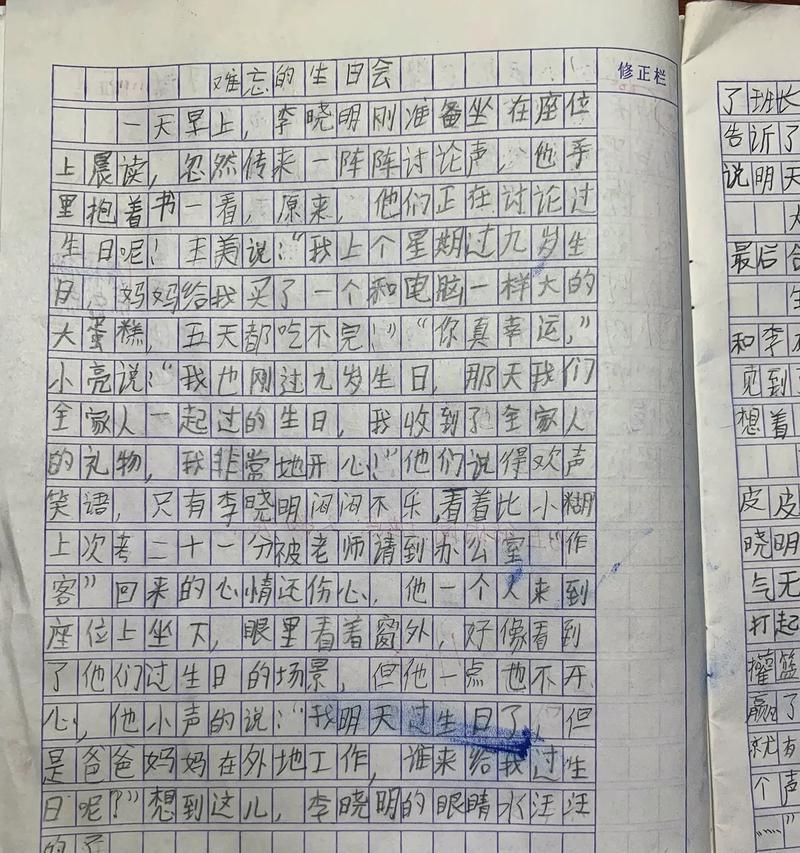 难忘的生日会
修正栏
一天早上，李晓明刚准备坐在座位
上晨读，忽然传来一阵阵讨论声，他手
里抱着书一看，原来，他们正在讨论过
生日呢！王美说：“我上个星期过九岁生
日，妈妈给我买了一个和电脑一样大的
大蛋糕，五天都吃不完！”“你真幸运，”
小亮说：“我也刚过九岁生日，那天我们
全家人一起过的生日，我收到了全家人
的礼物，我非常地开心！”他们说得欢声
笑语，只有李晓明闷闷不乐，看着比小糊
上次考二十一分被老师请到办公室“作
客”回来的心情还伤心，他一个人来到
座位上坐下，眼里看着窗外，好像看到
了他们过生日的场景，但他一点也不开
心，他小声的说：“我明天过生日了，但
是爸爸妈妈在外地工作，谁来给我过生
日呢？”想到这儿，李晓明的眼睛水汪汪
的了
了班长
告诉了
说明天
最后
和李
见到了
想着
皮皮
晓明
气无
打起
篮
赢了
就有
个声
“……”